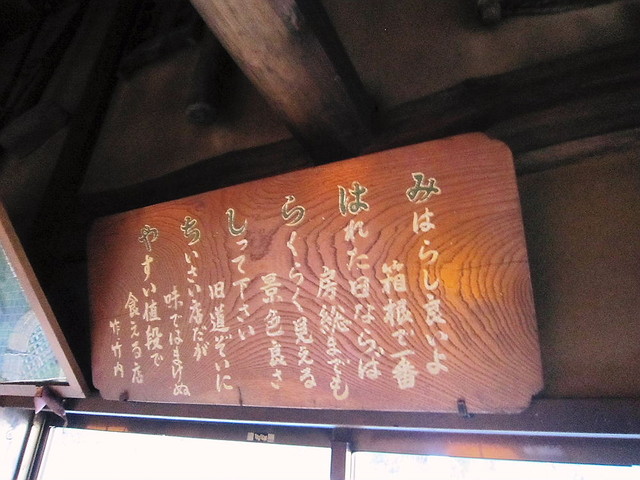 みはらし良いよ
箱根で一番
はれた日ならば
房総までも
らくらく見える
景色良さ
しって下さい
旧道ぞいに
ちいさい店だが
味ではまけぬ
やすい値段で
食える店
作竹内